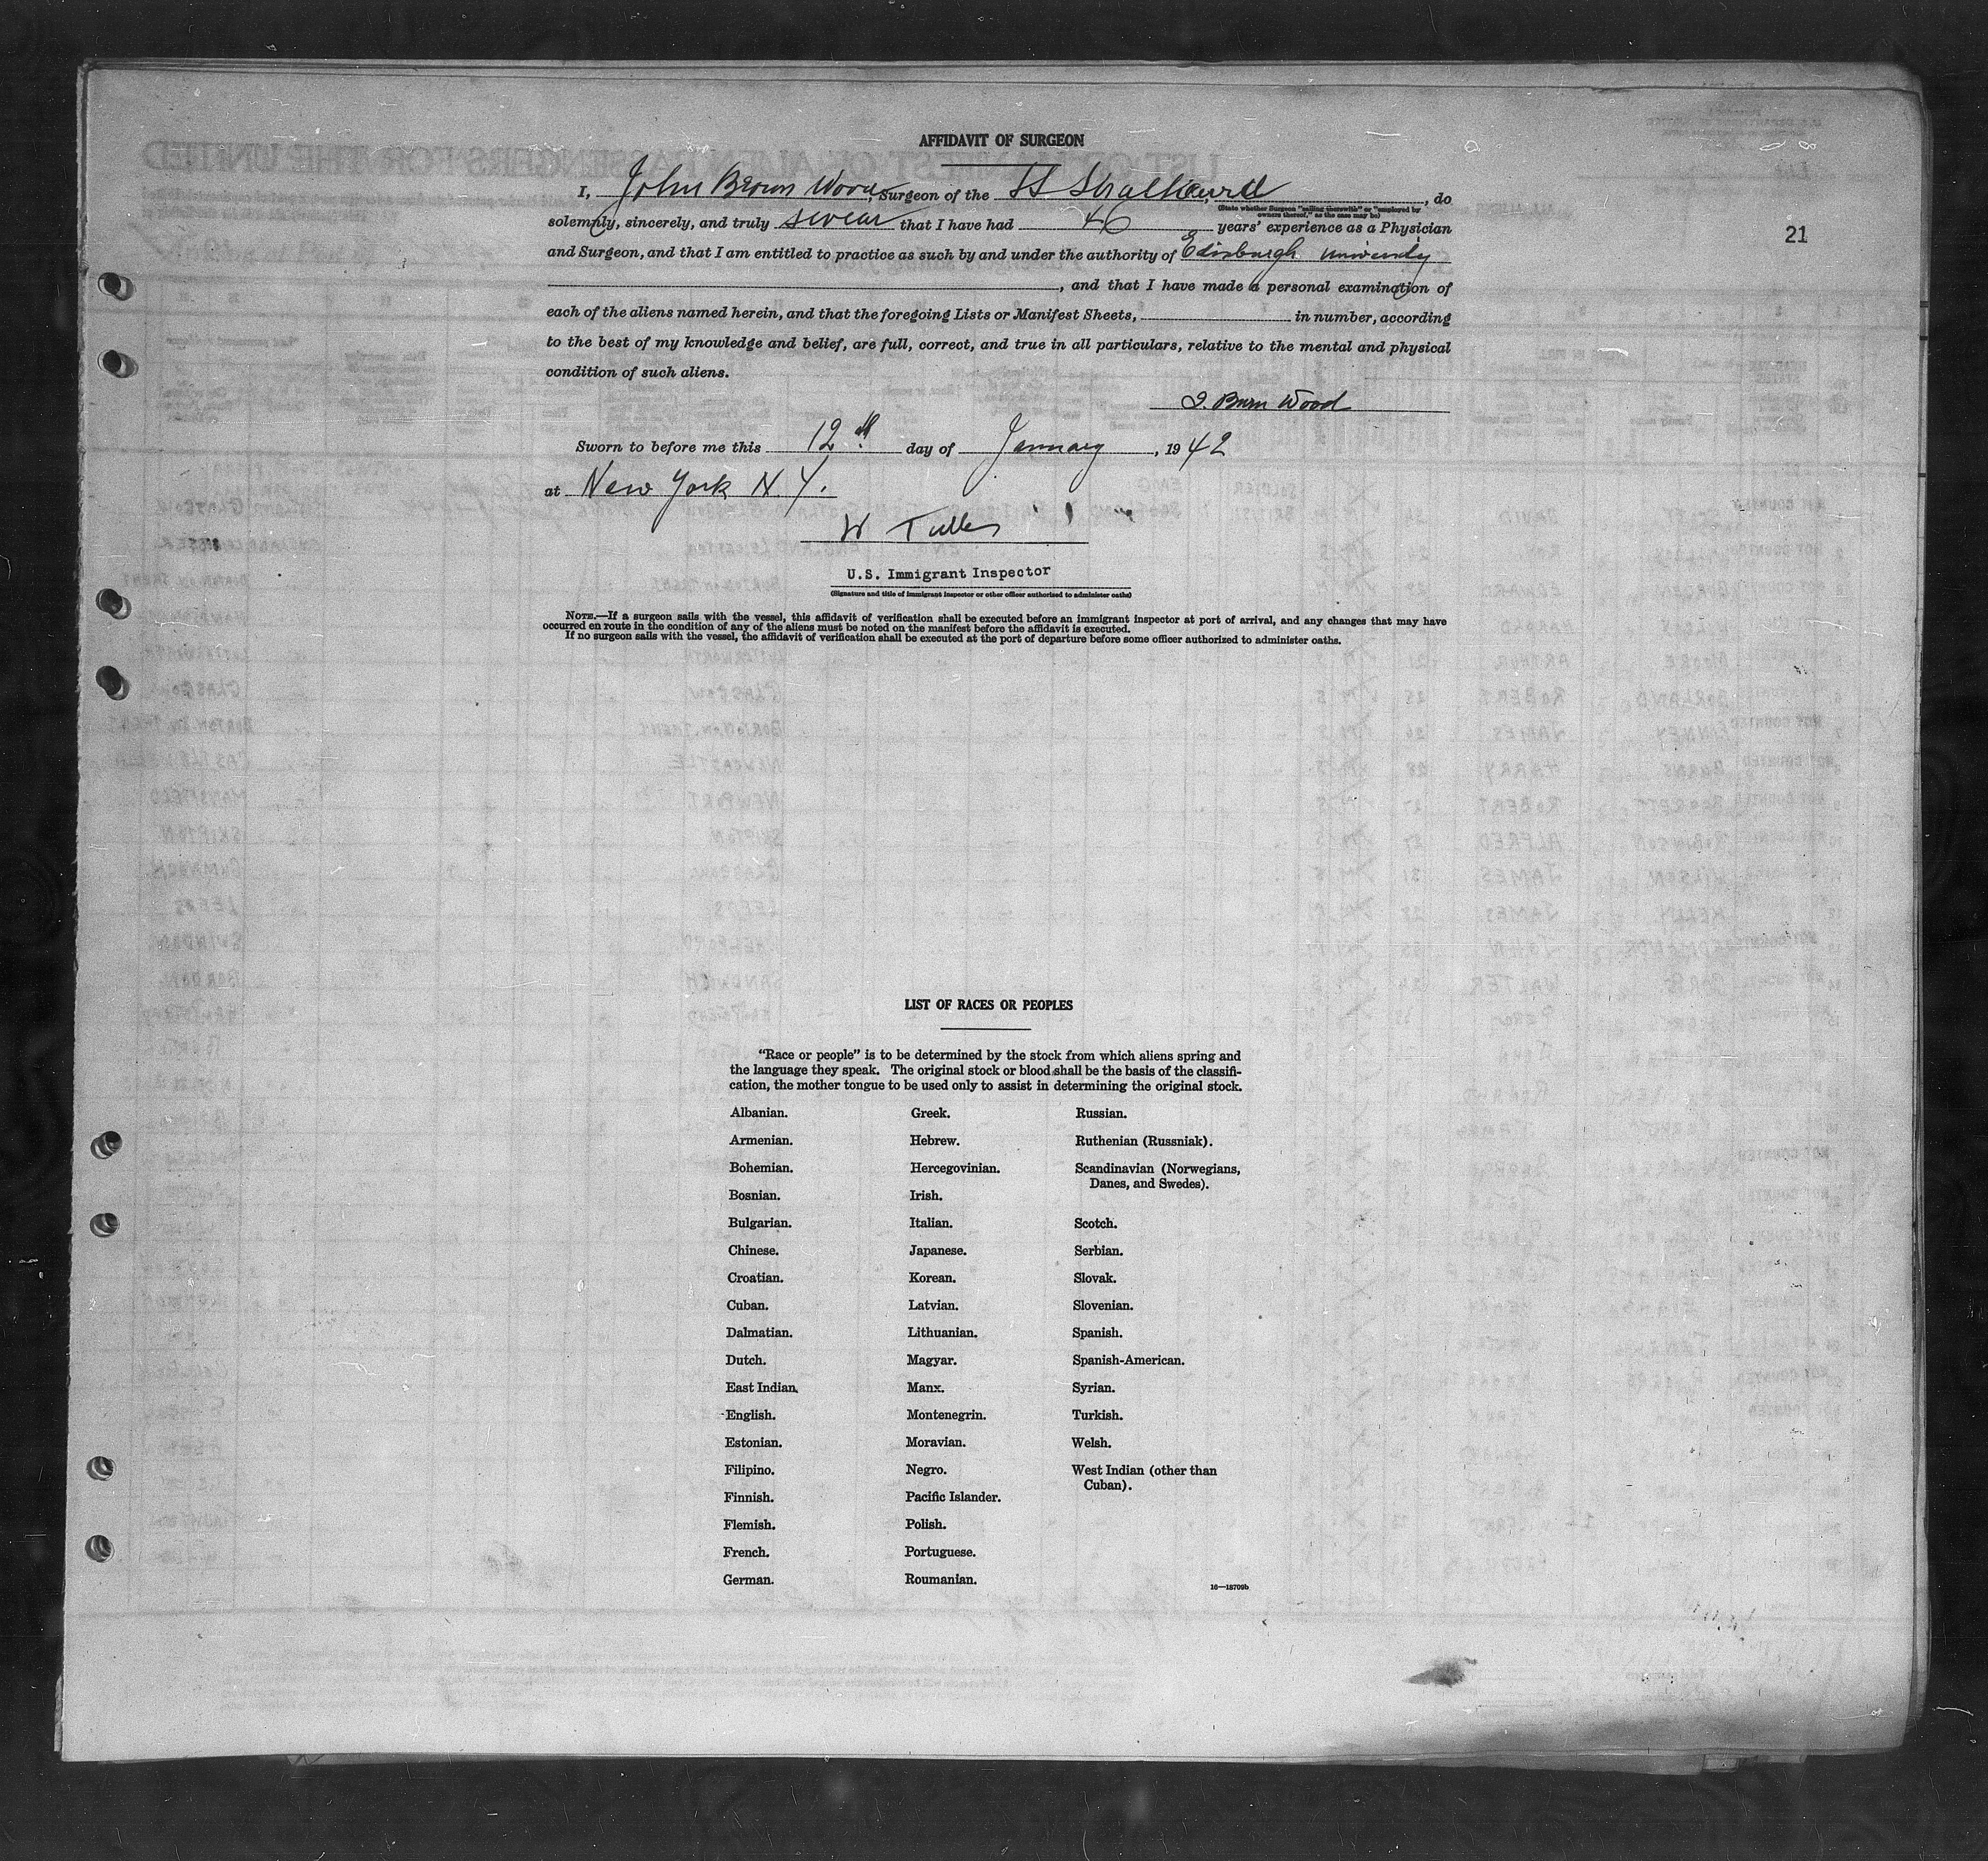 AFFIDAVIT OF SURGEON
I, John Brown Wood, Surgeon of the SS Strathaird, do
(State whether Surgeon "sailing therewith" or "employed by
owners thereof," as the case may be)
solemnly, sincerely, and truly swear that I have had 46 years' experience as a Physician
21
and Surgeon, and that I am entitled to practice as such by and under the authority of Edinburgh University
, and that I have made a personal examination of
each of the aliens named herein, and that the foregoing Lists or Manifest Sheets, in number, according
to the best of my knowledge and belief, are full, correct, and true in all particulars, relative to the mental and physical
condition of such aliens.
J. Brown Wood
Sworn to before me this 12th day of January, 1942
at New York N.Y.
W
U.S. Immigrant Inspector
(Signature and title of immigrant inspector or other officer authorized to administer oaths)
NOTE.—If a surgeon sails with the vessel, this affidavit of verification shall be executed before an immigrant inspector at port of arrival, and any changes that may have
occurred en route in the condition of any of the aliens must be noted on the manifest before the affidavit is executed.
If no surgeon sails with the vessel, the affidavit of verification shall be executed at the port of departure before some officer authorized to administer oaths.
LIST OF RACES OR PEOPLES
"Race or people" is to be determined by the stock from which aliens spring and
the language they speak. The original stock or blood shall be the basis of the classifi-
cation, the mother tongue to be used only to assist in determining the original stock.
Albanian.
Armenian.
Bohemian.
Bosnian.
Bulgarian.
Chinese.
Croatian.
Cuban.
Dalmatian.
Dutch.
East Indian.
English.
Estonian.
Filipino.
Finnish.
Flemish.
French.
German.
Greek.
Hebrew.
Hercegovinian.
Irish.
Italian.
Japanese.
Korean.
Latvian.
Lithuanian.
Magyar.
Manx.
Montenegrin.
Moravian.
Negro.
Pacific Islander.
Polish.
Portuguese.
Roumanian.
Russian.
Ruthenian (Russniak).
Scandinavian (Norwegians,
Danes, and Swedes).
Scotch.
Serbian.
Slovak.
Slovenian.
Spanish.
Spanish-American.
Syrian.
Turkish.
Welsh.
West Indian (other than
Cuban).
16—18709b